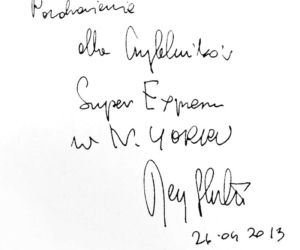 Pozdrowienia
dla Czytelników
Super Expressu
w N. YORKU
26.04 2013